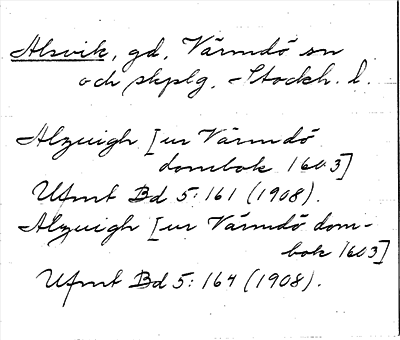 Alsvik, gd, Värmdö sn
och skplg, Stockh. l.
Alzuigh [ur Värmdö
dombok 1603]
Ufmt Bd 5:161 (1908).
Alzuigh [ur Värmdö dom-
bok 1603]
Ufmt Bd 5:164 (1908).